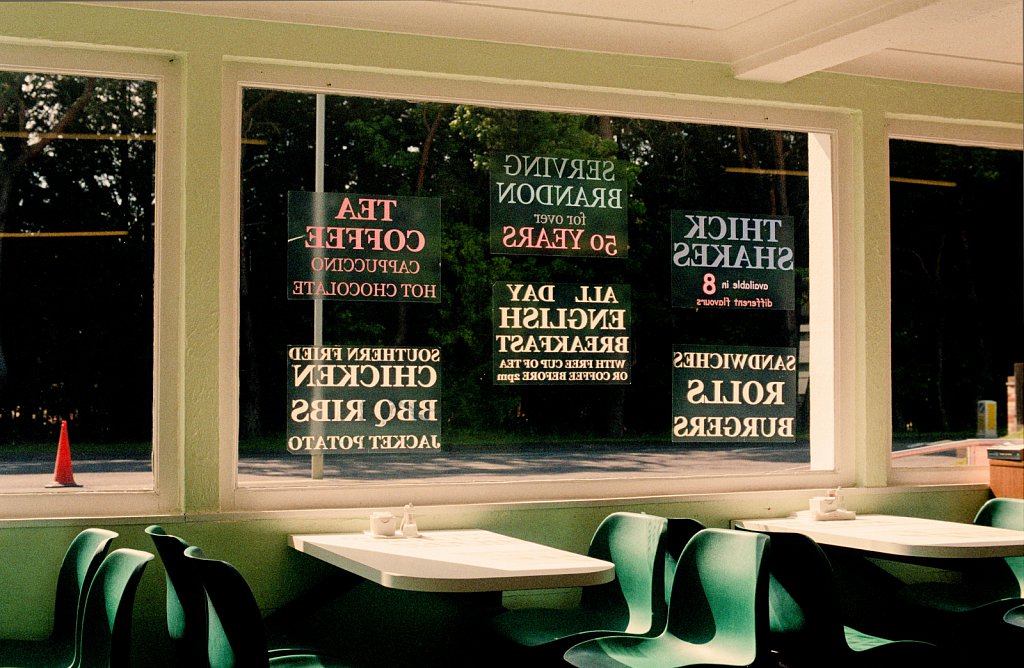 TEA
COFFEE
CAPPUCCINO
HOT CHOCOLATE
SERVING
BRANDON
for over
50 YEARS
THICK
SHAKES
available in 8
different flavours
SOUTHERN FRIED
CHICKEN
BBQ RIBS
JACKET POTATO
ALL DAY
ENGLISH
BREAKFAST
WITH FREE CUP OF TEA
OR COFFEE BEFORE 2pm
SANDWICHES
ROLLS
BURGERS